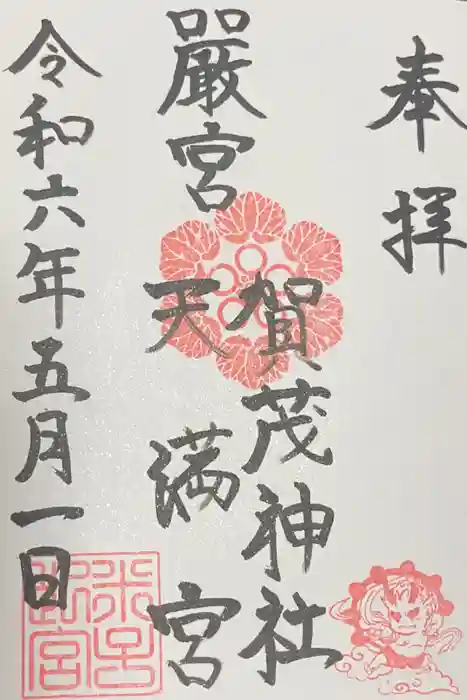 奉拝
賀茂神社
嚴宮
天満宮
令和六年五月一日